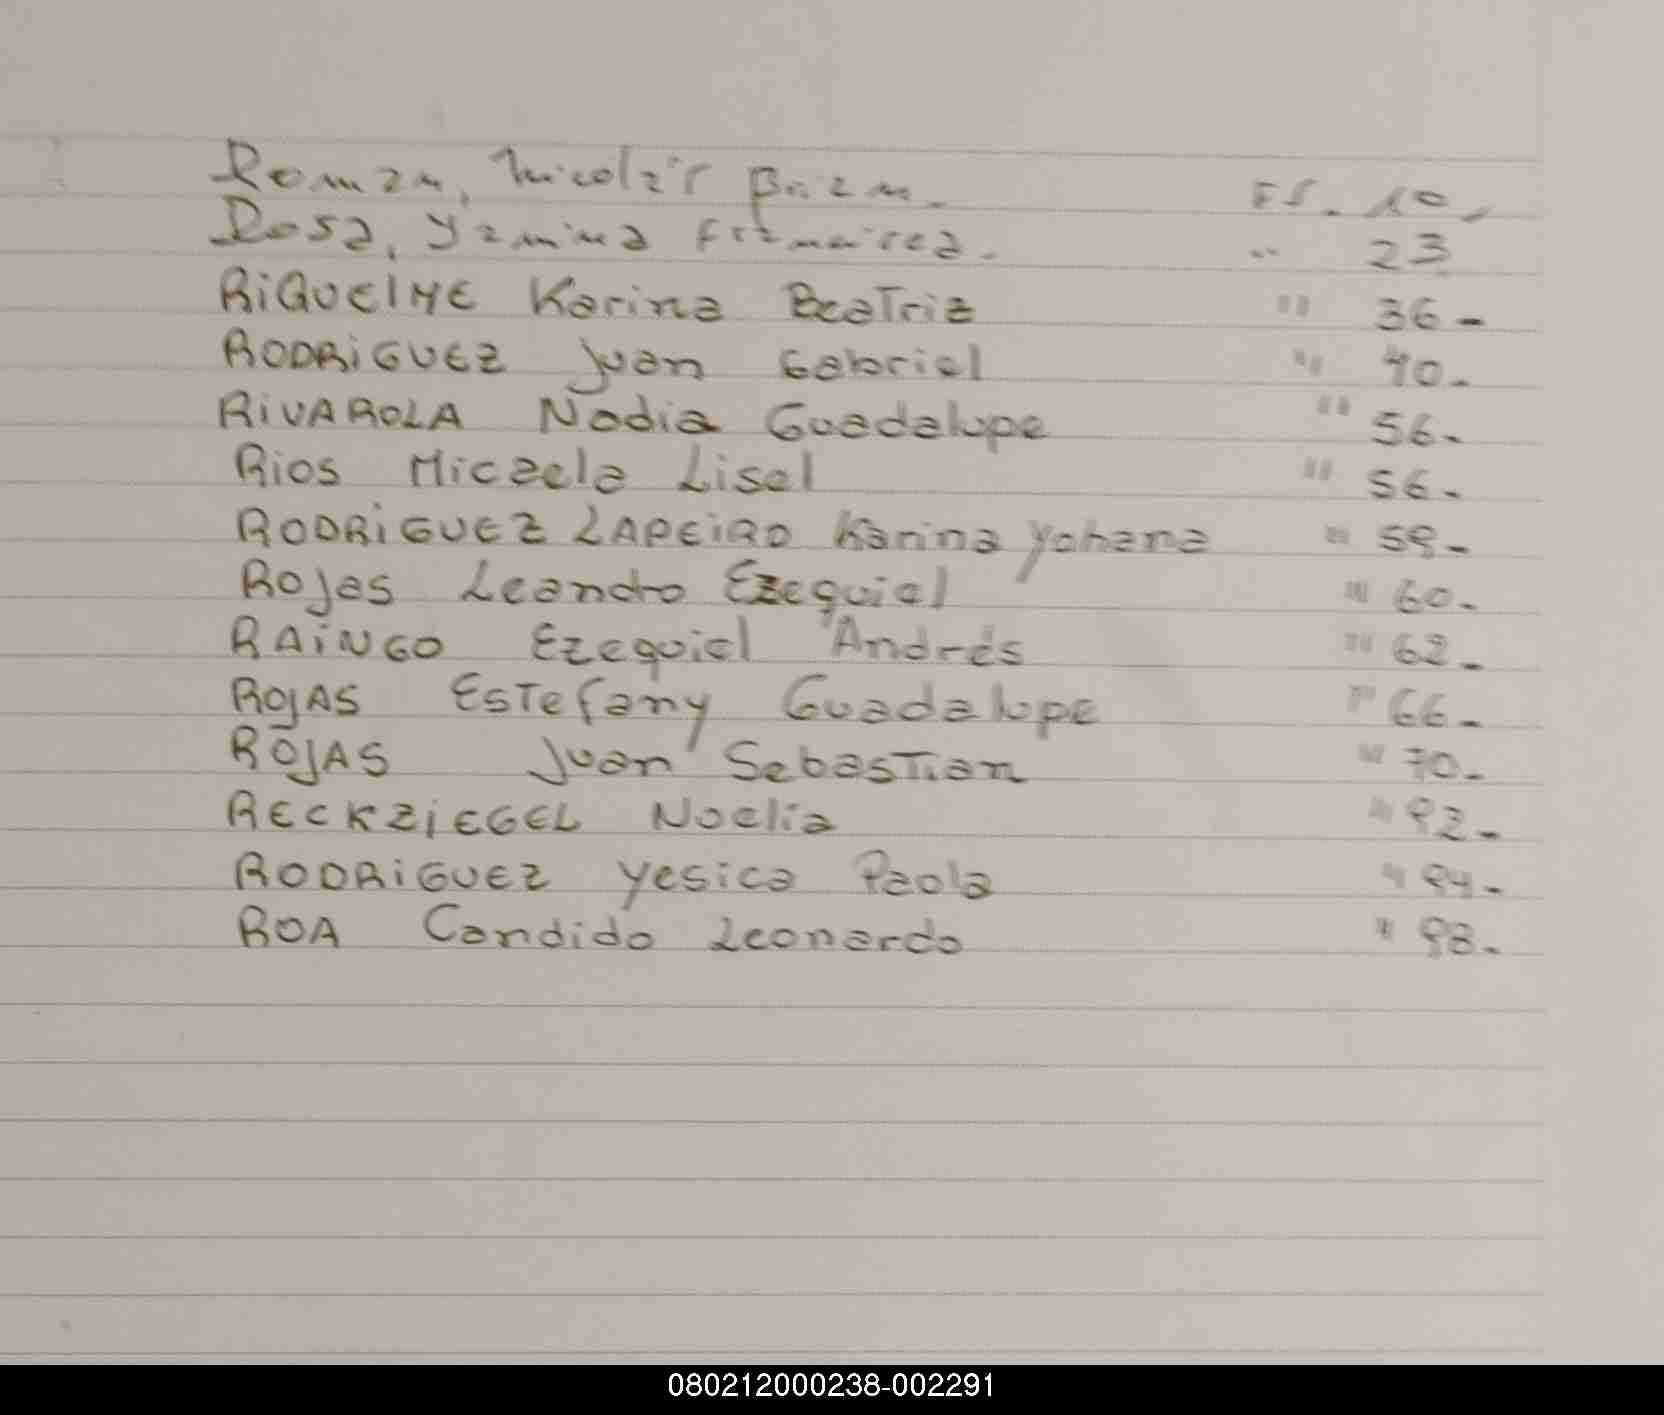 Roman, Nicolás Brian. FS. 10.
Rosa, Yamina Francisca. " 23
RiQUElME Karina Beatriz " 36-
RODRiGUEZ Juan Gabriel " 40-
RiVAROLA Nadia Guadalupe " 56-
Rios Micaela Lisel " 56-
RODRiGUEZ LAPEiRO Karina Yohana " 59-
Rojas Leandro Ezequiel " 60-
RAiNGO Ezequiel Andrés " 62-
ROJAS Estefany Guadalupe " 66-
ROJAS Juan Sebastian " 70-
RECKZiEGEL Noelia " 92-
RODRiGUEZ Yesica Paola " 94-
ROA Candido Leonardo " 98-
080212000238-002291